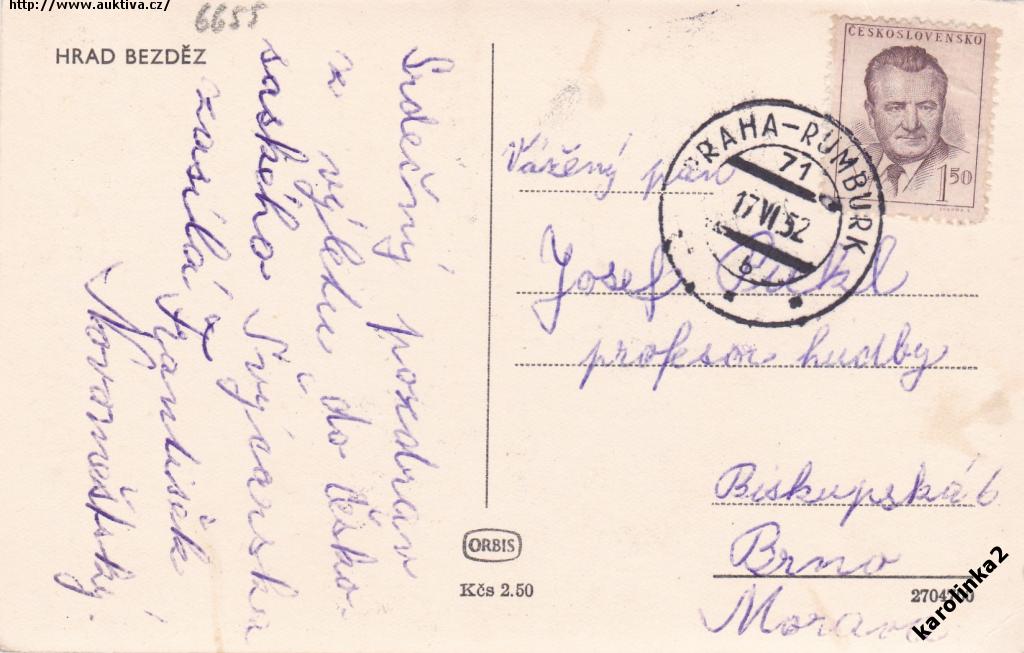 http://www.auktiva.cz/
6655
HRAD BEZDĚZ
Srdečný pozdrav
z výletu do Česko-
saského Švýcarska
zasílá
Jantišek
Novoměstský.
ČESKOSLOVENSKO
1.50
PRAHA-RUMBURK
71
17 VI 52
b
Vážený pan
Josef
profesor hudby
Biskupská 6
Brno
Morava
ORBIS
Kčs 2.50
karolinka2